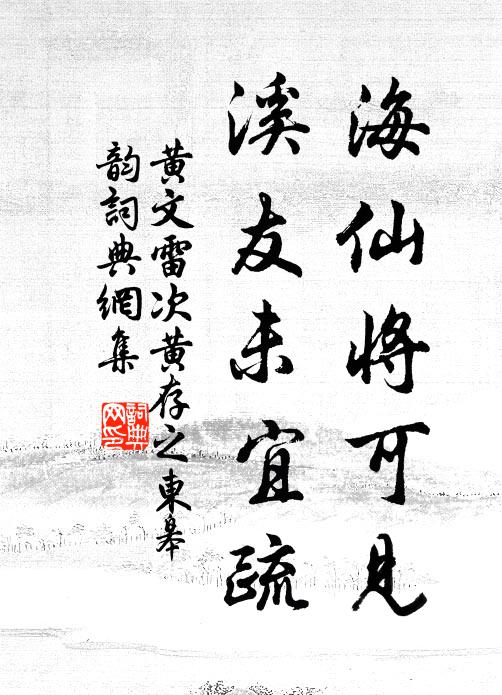 海仙将可見
溪友未宜疏
黄文雷次黄存之東皋
韵詞典網集
詞典
网印